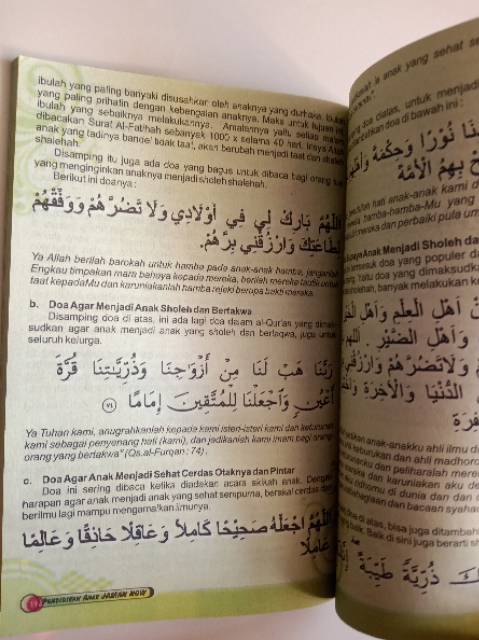 ibulah yang paling banyak disusahkar oleh anaknya yang durhaka. Ibulah
yang paling prihatin dengan kebengalan anaknya. Maka untuk tujuan ini
ibulah yang sebaiknya melakukannya. Amalannya yaitu setiap malam
dibacakan Surat Al-Fatihah sebanyak 1000 x selama 40 hari. Insya Allah
anak yang tadinya bandel tidak taat, akan berubah menjadi taat dan
shalehah.
Disamping itu juga ada doa yang bagus untuk dibaca bagi orang tua
yang menginginkan anaknya menjadi sholeh shalehah.
Berikut ini doanya :
اَللّٰهُمَّ بَارِكْ لِي فِي أَوْلَادِي وَلَا تَضُرَّهُمْ وَوَفِّقْهُمْ
لِطَاعَتِكَ وَارْزُقْنِي بِرَّهُمْ.
Ya Allah berilah barokah untuk hamba pada anak-anak hamba, janganlah
Engkau timpakan mara bahaya kepada mereka, berilah mereka taufik untuk
taat kepadaMu dan karuniakanlah hamba rejeki berupa bakti mereka.
b. Doa Agar Menjadi Anak Sholeh dan Bertakwa
Disamping doa di atas, ini ada lagi doa dalam al-Qur'an yang dimak-
sudkan agar anak menjadi anak yang sholeh dan bertaqwa, juga untuk
seluruh keluarga.
رَبَّنَا هَبْ لَنَا مِنْ أَزْوَاجِنَا وَذُرِّيَّتِنَا قُرَّةَ
أَعْيُنٍ وَاجْعَلْنَا لِلْمُتَّقِينَ إِمَامًا ﴿٧٤﴾
Ya Tuhan kami, anugrahkanlah kepada kami isteri-isteri kami dan keturunan
kami sebagai penyenang hati (kami), dan jadikanlah kami imam bagi orang-
orang yang bertakwa" (Qs.al-Furqan : 74) .
c. Doa Agar Anak Menjadi Sehat Cerdas Otaknya dan Pintar
Doa ini sering dibaca ketika diadakan acara akikah anak. Dengan
harapan agar anak menjadi anak yang sehat sempurna, berakal cerdas dan
berilmu lagi mampu mengamalkan ilmunya.
اَللّٰهُمَّ اجْعَلْهُ صَحِيْحًا كَامِلًا وَعَاقِلًا حَاذِقًا وَعَالِمًا
عَامِلًا
PENDIDIKAN ANAK JAMAN NOW
anak yang sehat
doa diatas, untuk menjadi
doa di bawah ini :
نُوْرًا وَحِكْمَةً
بِهِمُ الْأُمَّةَ
anak-anak kami
hamba-hamba-Mu yang
dan perbaiki pula
Anak Menjadi Sholeh
doa yang populer
Yaitu doa yang dimaksud
banyak melakukan
أَهْلِ الْعِلْمِ وَأَهْلِ
وَأَهْلِ الضَّيْرِ اَللّٰهُمَّ
وَلَا تَضُرَّهُمْ وَارْزُقْنِي
الدُّنْيَا وَالْآخِرَةِ
anak-anakku ahli ilmu
keburukan dan ahli
dan peliharalah
dan karuniakan aku
di dunia dan
kebahagiaan dan bacaan
di atas, bisa juga ditambah
Baik di sini juga berarti
ذُرِّيَّةً طَيِّبَةً